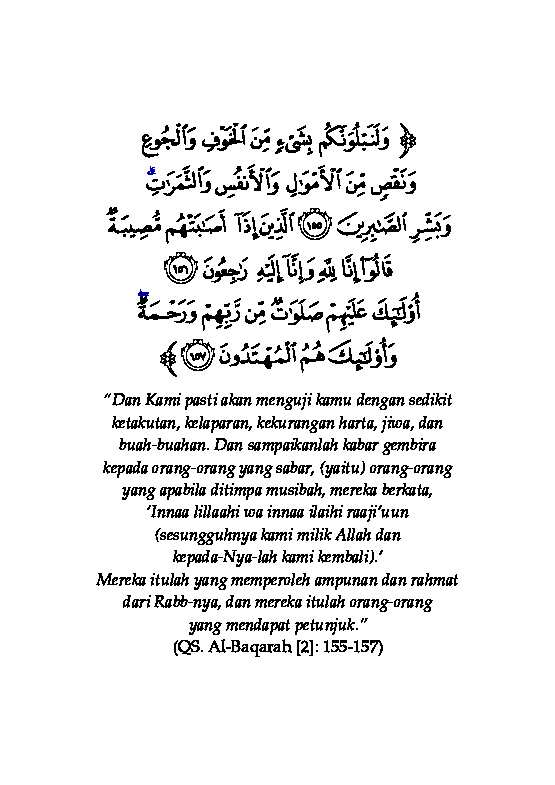 ﴿ وَلَنَبْلُوَنَّكُم بِشَىْءٍ مِّنَ الْخَوْفِ وَالْجُوعِ
وَنَقْصٍ مِّنَ الْأَمْوَٰلِ وَالْأَنفُسِ وَالثَّمَرَٰتِ ۗ
وَبَشِّرِ الصَّٰبِرِينَ ١٥٥ الَّذِينَ إِذَآ أَصَٰبَتْهُم مُّصِيبَةٌ
قَالُوٓا۟ إِنَّا لِلَّهِ وَإِنَّآ إِلَيْهِ رَٰجِعُونَ ١٥٦
أُو۟لَٰٓئِكَ عَلَيْهِمْ صَلَوَٰتٌ مِّن رَّبِّهِمْ وَرَحْمَةٌ ۖ
وَأُو۟لَٰٓئِكَ هُمُ الْمُهْتَدُونَ ١٥٧ ﴾
“Dan Kami pasti akan menguji kamu dengan sedikit
ketakutan, kelaparan, kekurangan harta, jiwa, dan
buah-buahan. Dan sampaikanlah kabar gembira
kepada orang-orang yang sabar, (yaitu) orang-orang
yang apabila ditimpa musibah, mereka berkata,
‘Innaa lillaahi wa innaa ilaihi raaji’uun
(sesungguhnya kami milik Allah dan
kepada-Nya-lah kami kembali).’
Mereka itulah yang memperoleh ampunan dan rahmat
dari Rabb-nya, dan mereka itulah orang-orang
yang mendapat petunjuk.”
(QS. Al-Baqarah [2]: 155-157)